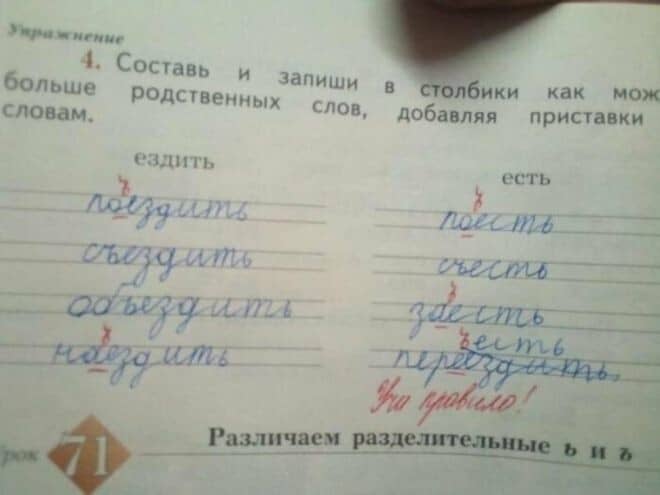 Упражнение
4. Составь и запиши в столбики как мож
больше родственных слов, добавляя приставки
словам.
ездить
ъ
поездить
съездить
объездить
ъ
наездить
есть
ъ
поесть
съесть
ъ
заесть
ъ есть
переездить
Учи правило!
рок 71 Различаем разделительные ь и ъ